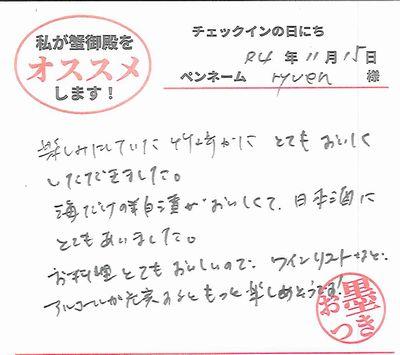 私が蟹御殿を
オススメ
します!
チェックインの日にち
R4年11月15日
ペンネーム ryuen 様
楽しみにしていた 竹崎かに とてもおいしく
いただきました。
海だけの粕漬がおいしくて、日本酒に
とてもあいました。
お料理とてもおいしいので、ワインリストなど
アルコールが充実するともっと楽しめそうです!
お墨つき